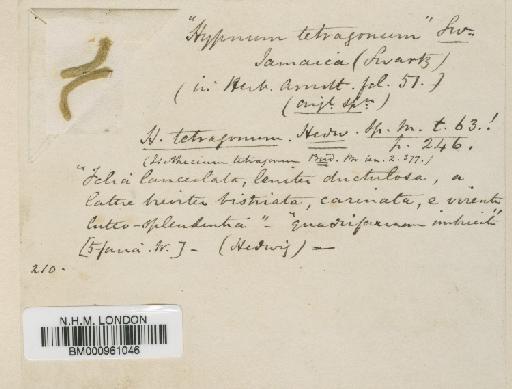 "Hypnum tetragonum" Sw.
Jamaica (Swartz)
(in Herb. Arnott. fol. 51.)
(orig. spn.)
H. tetragonum. Hedw. Sp. M. t. 63.!
p. 246.
(Isothecium tetragonum Brid. Br. un. 2. 377.)
"Folia lanceolata, leniter ductulosa, a
latere breviter bistriata, carinata, e virente
luteo-splendentia" - "quadrifariam imbricat"
[5 faria. W.] - (Hedwig) —
210.
N.H.M. LONDON
BM000961046